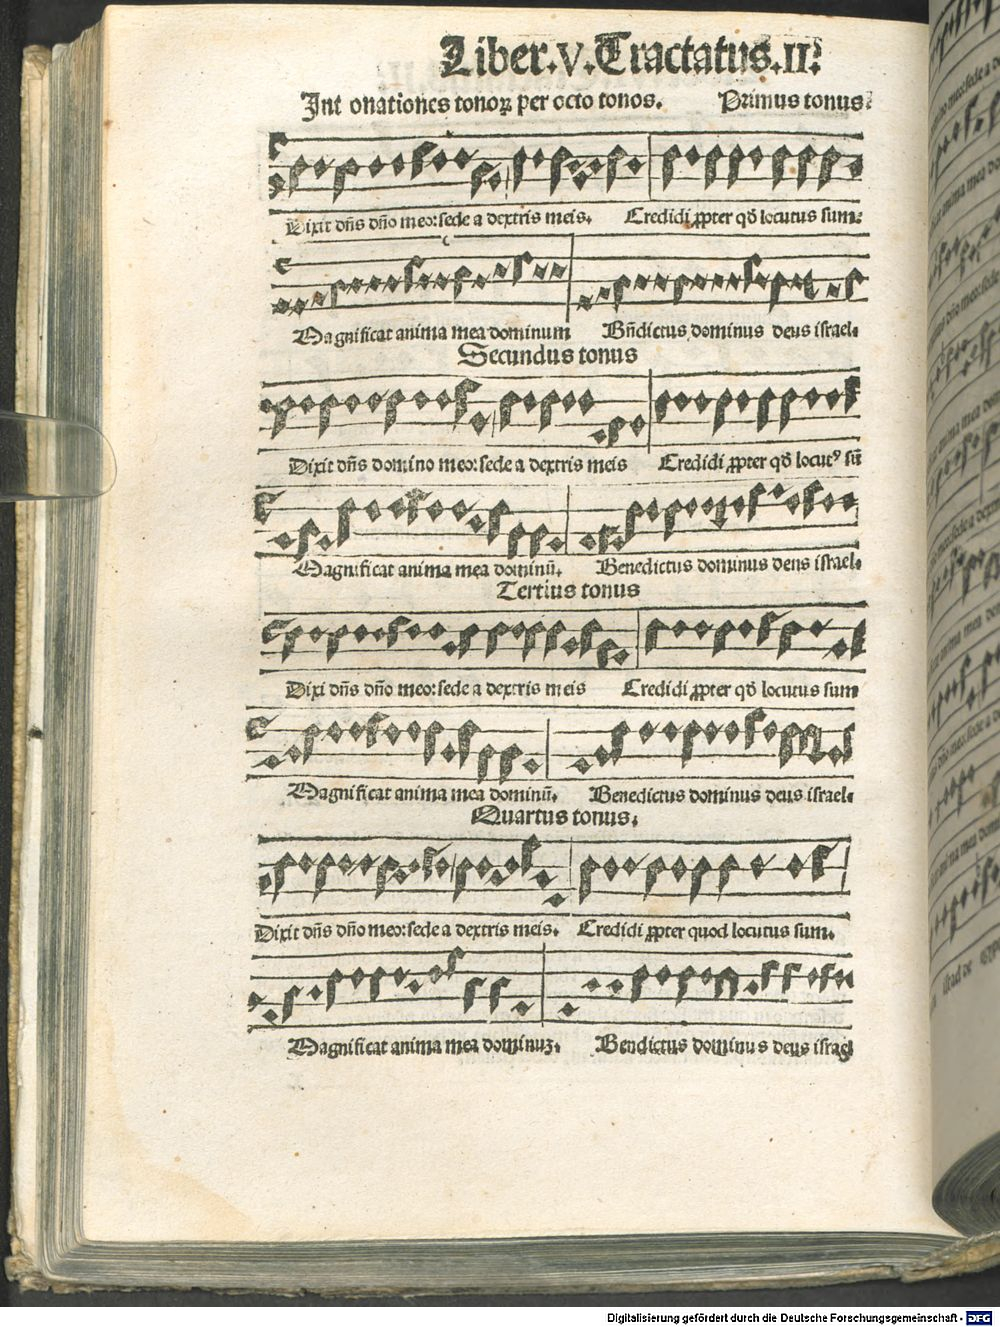 Liber.V.Tractatus.II.
Intonationes tonoꝝ per octo tonos. Primus tonus.
Dixit dn̄s dn̄o meo: sede a dextris meis. Credidi ꝓpter qđ locutus sum.
Magnificat anima mea dominum Bn̄dictus dominus deus israel.
Secundus tonus
Dixit dn̄s domino meo: sede a dextris meis Credidi ꝓpter qđ locutꝰ sū
Magnificat anima mea dominū. Benedictus dominus deus israel.
Tertius tonus
Dixi dn̄s dn̄o meo: sede a dextris meis Credidi ꝓpter qđ locutus sum
Magnificat anima mea dominū. Benedictus dominus deus israel.
Quartus tonus.
Dixit dn̄s dn̄o meo: sede a dextris meis. Credidi ꝓpter quod locutus sum.
Magnificat anima mea dominuꝫ. Bendictus dominus deus israel
Digitalisierung gefördert durch die Deutsche Forschungsgemeinschaft - DFG